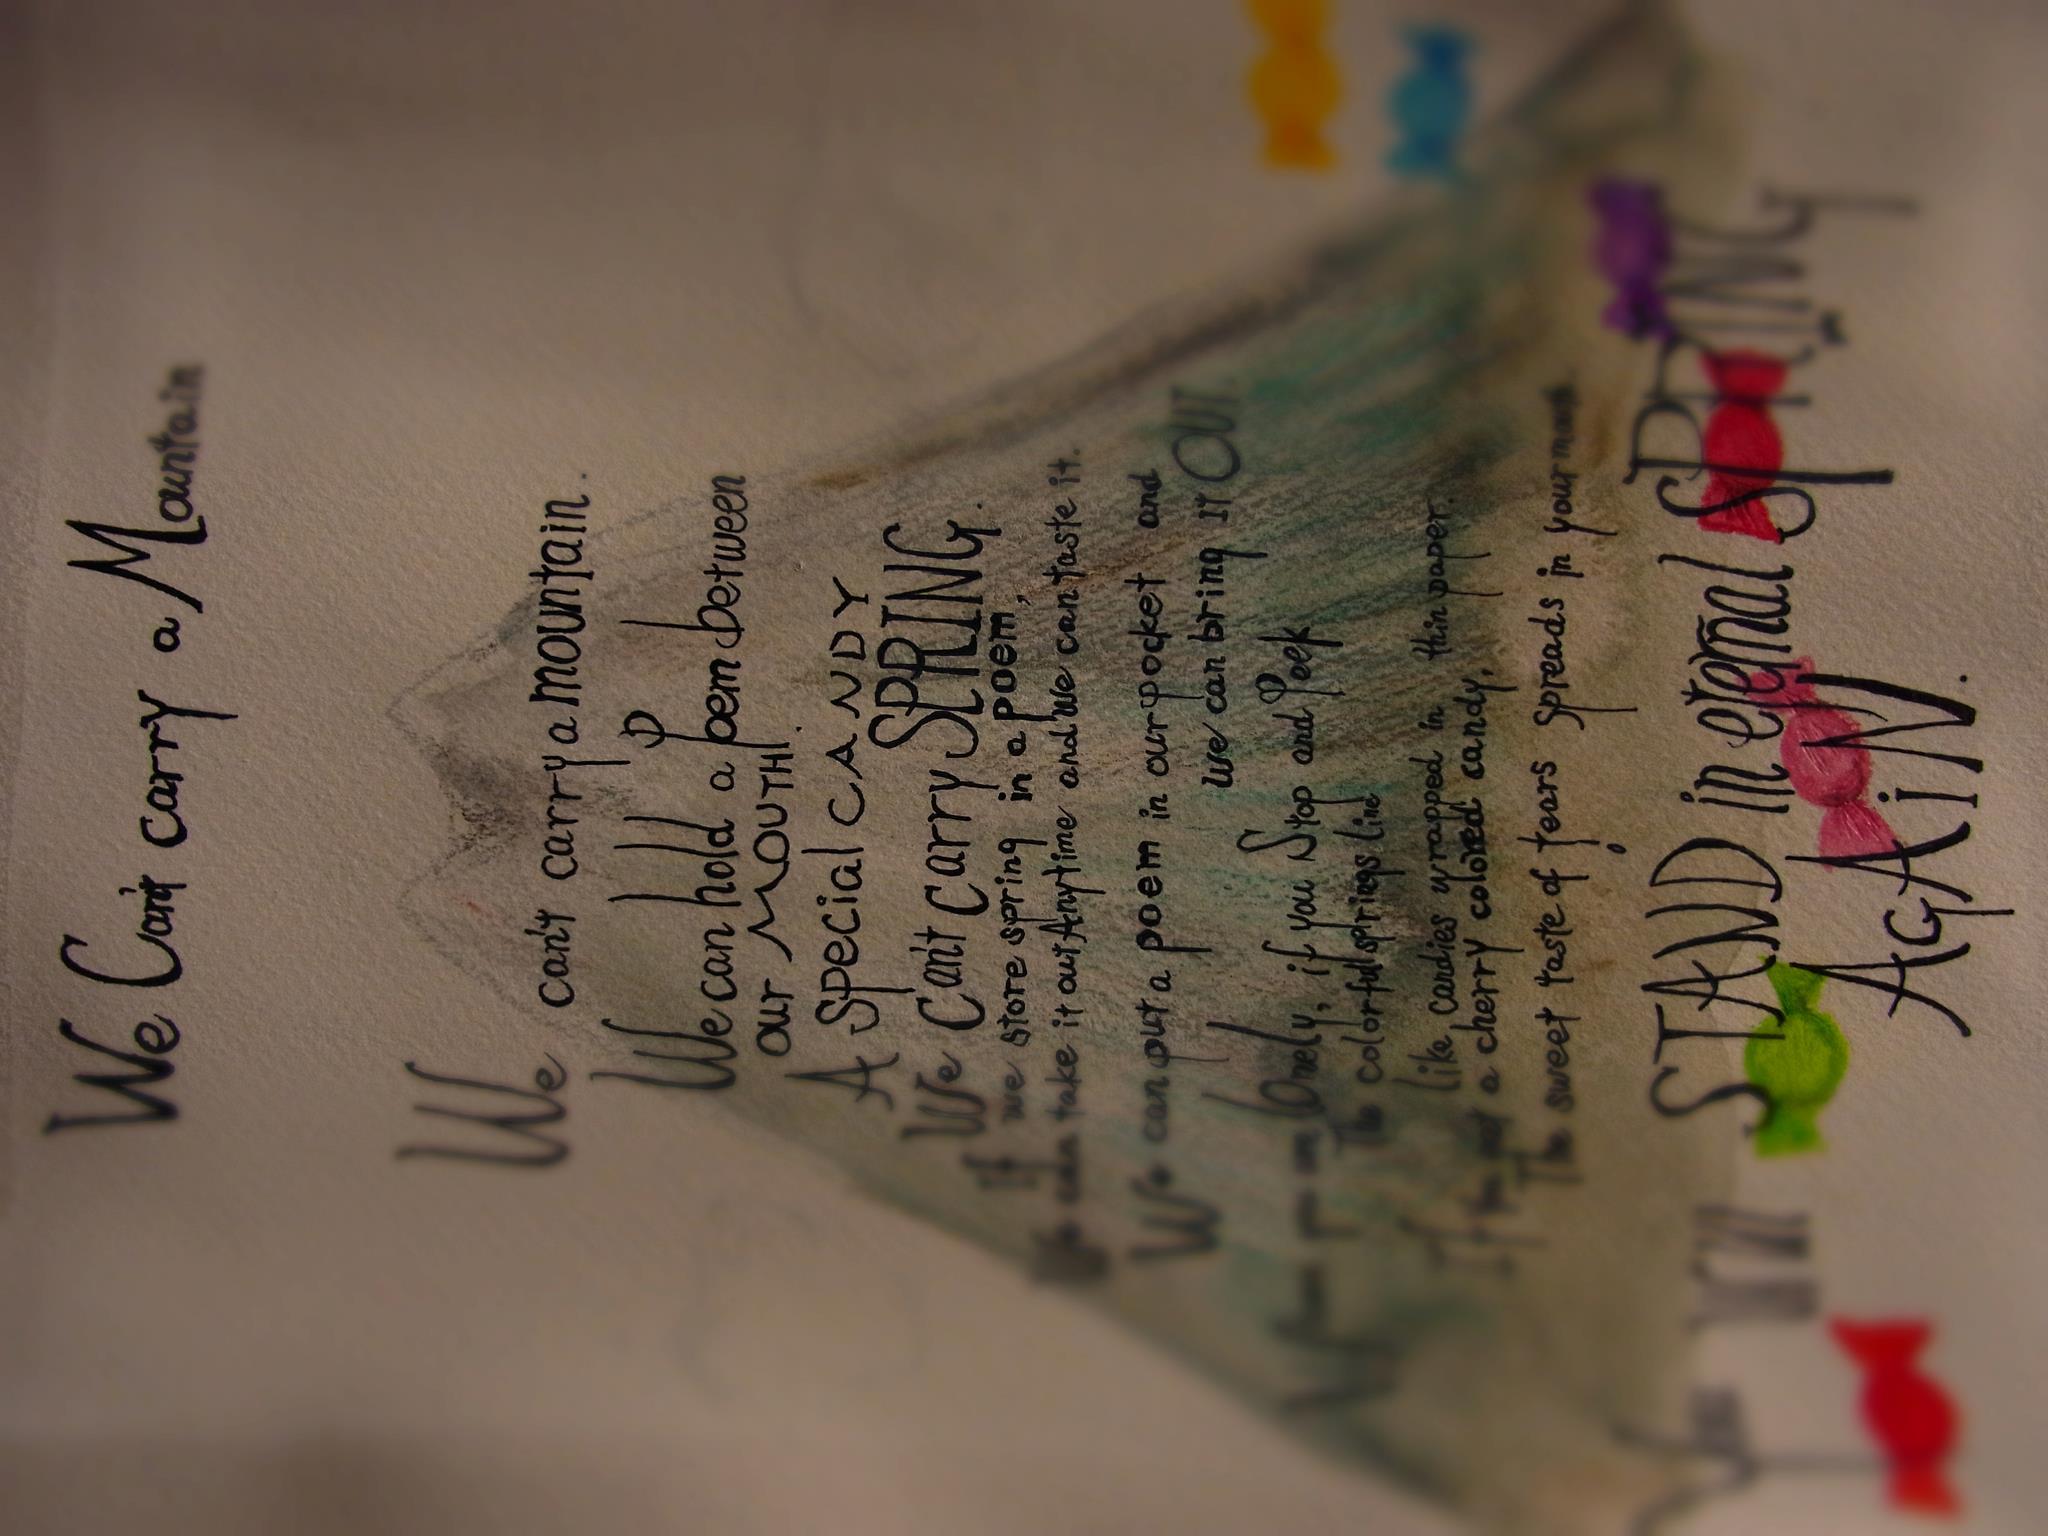 We Can't carry a Mountain
We can't carry a mountain.
We can hold a poem between
our MOUTH!
A Special CANDY
We Can't Carry SPRING.
If we store spring in a poem,
We can take it out Anytime and We can taste it.
We can put a poem in our pocket and
we can bring IT OUT.
lonely, if you Stop and Peek
The colorful springs line
like candies wrapped in thin paper.
If you put a cherry colored candy,
The sweet taste of tears spreads in your mouth
You will STAND in eternal SPRING
AGAiN.